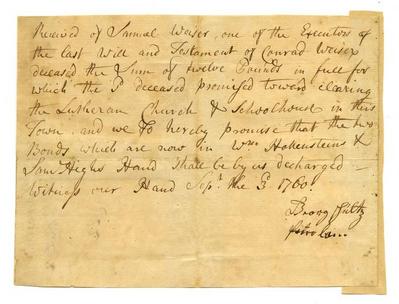 Received of Samuel Weiser, one of the Executors of
the last Will and Testament of Conrad Weiser
deceased the Sum of twelve Pounds in full for
which the Sd deceased promised toward clearing
the Lutheran Church & Schoolhouse in this
Town, and we do hereby promise that the two
Bonds which are now in Wm Hottensteins &
Sam Highs Hand Shall be by us decharged
Witness our Hand Sept. the 3d 1760.